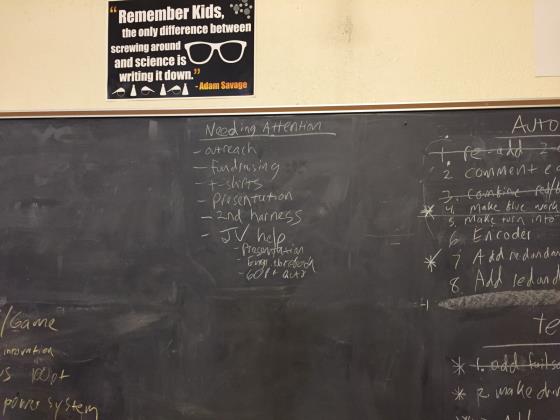 “Remember Kids,
the only difference between
screwing around
and science is
writing it down.”
- Adam Savage
Needing Attention
- outreach
- fundraising
- t-shirts
- Presentation
- 2nd harness
- JV help
- Presentation
- Engr notebook
- 60pt auto
Auto
1. re-add 2
2. comment co
3. combine red/b
* 4. make blue work
5. make turn into
6. Encoder
* 7 Add redundan
8. Add redund
te
* 1. add failsa
* 2. make driv
/Game
innovation
100pt
power system